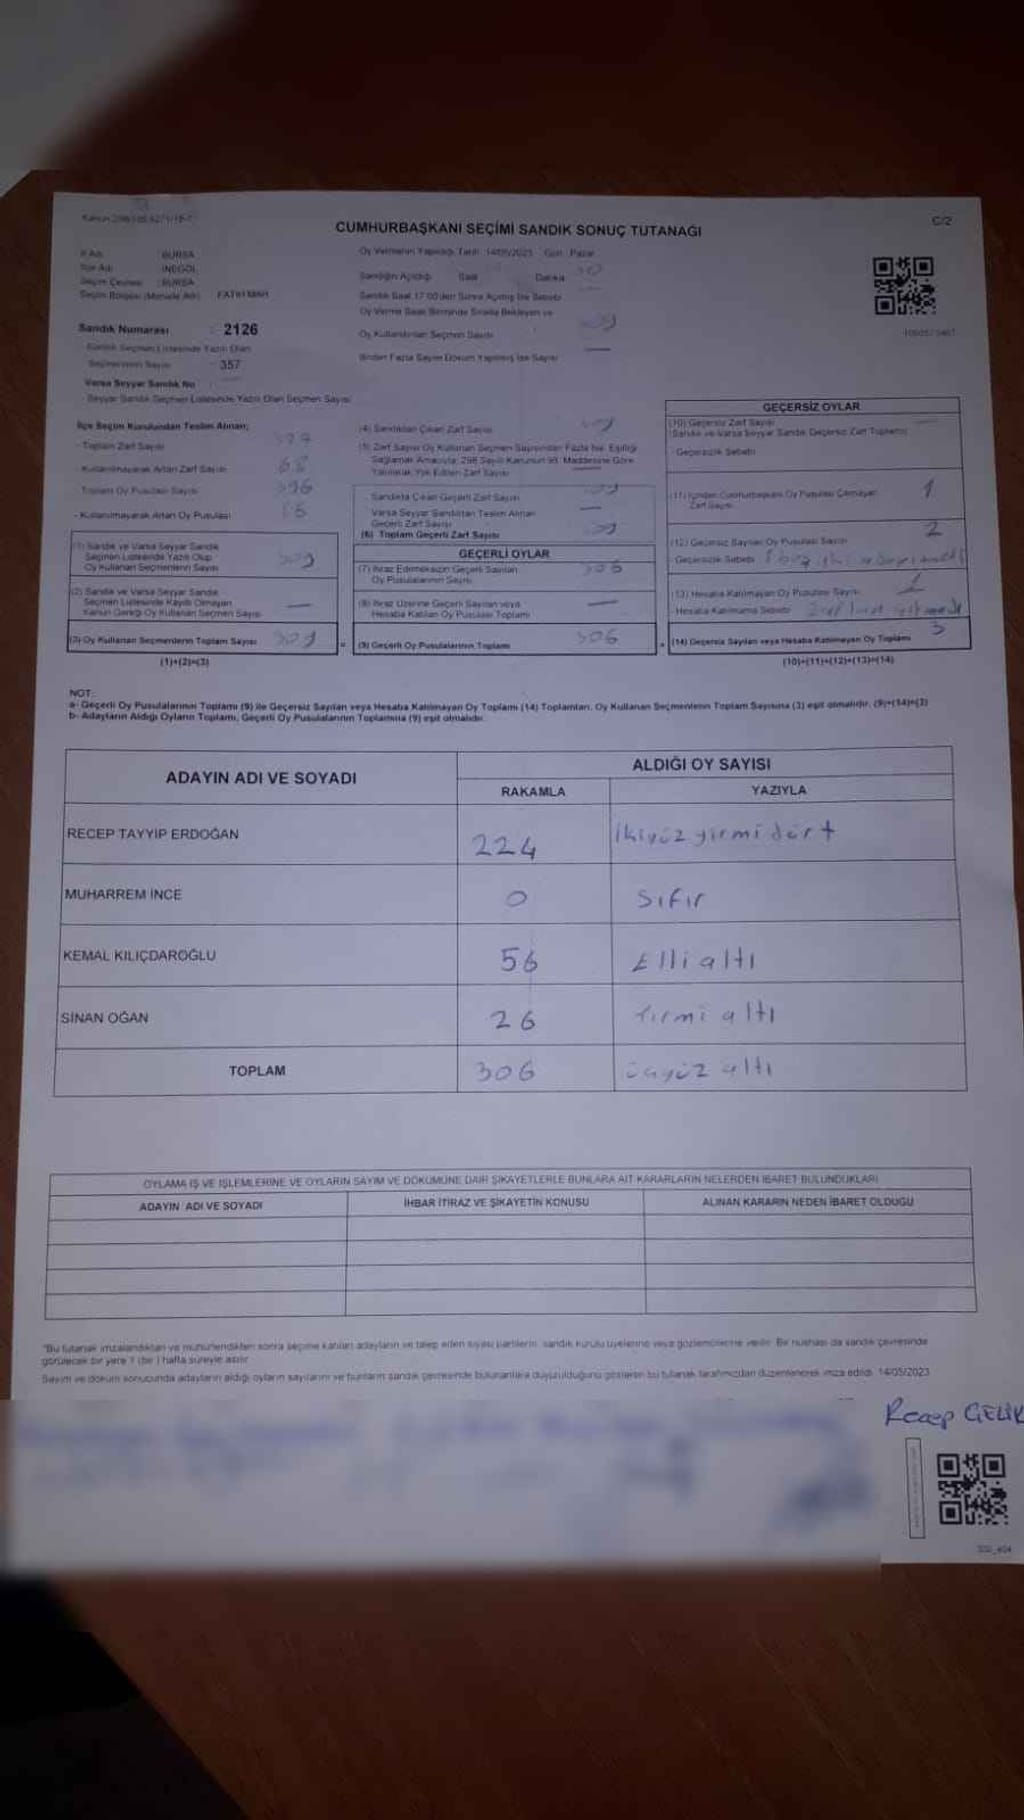 C/2
CUMHURBAŞKANI SEÇİMİ SANDIK SONUÇ TUTANAĞI
İl Adı : BURSA
İlçe Adı : İNEGÖL
Seçim Çevresi : BURSA
Seçim Bölgesi (Mahalle Adı) : FATİH MAH.
Sandık Numarası : 2126
Sandık Seçmen Listesinde Yazılı Olan
Seçmenlerin Sayısı : 357
Varsa Seyyar Sandık No
Seyyar Sandık Seçmen Listesinde Yazılı Olan Seçmen Sayısı
Oy Vermenin Yapıldığı Tarih : 14/05/2023 Gün : Pazar
Sandığın Açıldığı Saat Dakika
Sandık Saat 17.00'den Sonra Açılmış İse Sebebi
Oy Kullandırılan Seçmen Sayısı
Birden Fazla Sayım Döküm Yapılmış İse Sayısı
İlçe Seçim Kurulundan Teslim Alınan;
- Toplam Zarf Sayısı
- Kullanılmayarak Artan Zarf Sayısı 68
Toplam Oy Pusulası Sayısı
- Kullanılmayarak Artan Oy Pusulası
(1) Sandık ve Varsa Seyyar Sandık
Seçmen Listesinde Yazılı Olup
Oy Kullanan Seçmenlerin Sayısı 309
(2) Sandık ve Varsa Seyyar Sandık
Seçmen Listesinde Kayıtlı Olmayan
Kanun Gereği Oy Kullanan Seçmen Sayısı —
(3) Oy Kullanan Seçmenlerin Toplam Sayısı 309
(1)+(2)=(3)
(4) Sandıktan Çıkan Zarf Sayısı
(5) Zarf Sayısı Oy Kullanan Seçmen Sayısından Fazla İse, Eşitliği
Sağlamak Amacıyla, 298 Sayılı Kanunun 98. Maddesine Göre
Yakılarak Yok Edilen Zarf Sayısı —
- Sandıkta Çıkan Geçerli Zarf Sayısı
Varsa Seyyar Sandıktan Teslim Alınan
Geçerli Zarf Sayısı —
(6) Toplam Geçerli Zarf Sayısı
GEÇERLİ OYLAR
(7) İtiraz Edilmeksizin Geçerli Sayılan
Oy Pusulalarının Sayısı 306
(8) İtiraz Üzerine Geçerli Sayılan veya
Hesaba Katılan Oy Pusulası Toplamı —
(9) Geçerli Oy Pusulalarının Toplamı 306
GEÇERSİZ OYLAR
(10) Geçersiz Zarf Sayısı
(Sandık ve Varsa Seyyar Sandık Geçersiz Zarf Toplamı)
Geçersizlik Sebebi
(11) İçinden Cumhurbaşkanı Oy Pusulası Çıkmayan
Zarf Sayısı 1
(12) Geçersiz Sayılan Oy Pusulası Sayısı 2
Geçersizlik Sebebi
(13) Hesaba Katılmayan Oy Pusulası Sayısı
Hesaba Katılmama Sebebi
(14) Geçersiz Sayılan veya Hesaba Katılmayan Oy Toplamı 3
(10)+(11)+(12)+(13)=(14)
NOT:
a- Geçerli Oy Pusulalarının Toplamı (9) ile Geçersiz Sayılan veya Hesaba Katılmayan Oy Toplamı (14) Toplamları, Oy Kullanan Seçmenlerin Toplam Sayısına (3) eşit olmalıdır. (9)+(14)=(3)
b- Adayların Aldığı Oyların Toplamı, Geçerli Oy Pusulalarının Toplamına (9) eşit olmalıdır.
ADAYIN ADI VE SOYADI ALDIĞI OY SAYISI
RAKAMLA YAZIYLA
RECEP TAYYİP ERDOĞAN 224 ikiyüz yirmi dört
MUHARREM İNCE 0 Sıfır
KEMAL KILIÇDAROĞLU 56 Elli altı
SİNAN OĞAN 26 Yirmi altı
TOPLAM 306 üçyüz altı
OYLAMA İŞ VE İŞLEMLERİNE VE OYLARIN SAYIM VE DÖKÜMÜNE DAİR ŞİKAYETLERLE BUNLARA AİT KARARLARIN NELERDEN İBARET BULUNDUKLARI
ADAYIN ADI VE SOYADI İHBAR İTİRAZ VE ŞİKAYETİN KONUSU ALINAN KARARIN NEDEN İBARET OLDUĞU
*Bu tutanak imzalandıktan ve mühürlendikten sonra seçime katılan adayların ve talep eden siyasi partilerin sandık kurulu üyelerine veya gözlemcilerine verilir. Bir nüshası da sandık çevresinde
görülecek bir yere 1 (bir) hafta süreyle asılır.
Sayım ve döküm sonucunda adayların aldığı oyların sayılarını ve bunların sandık çevresinde bulunanlara duyurulduğunu gösteren bu tutanak tarafımızdan düzenlenerek imza edildi. 14/05/2023
Recep ÇELİK